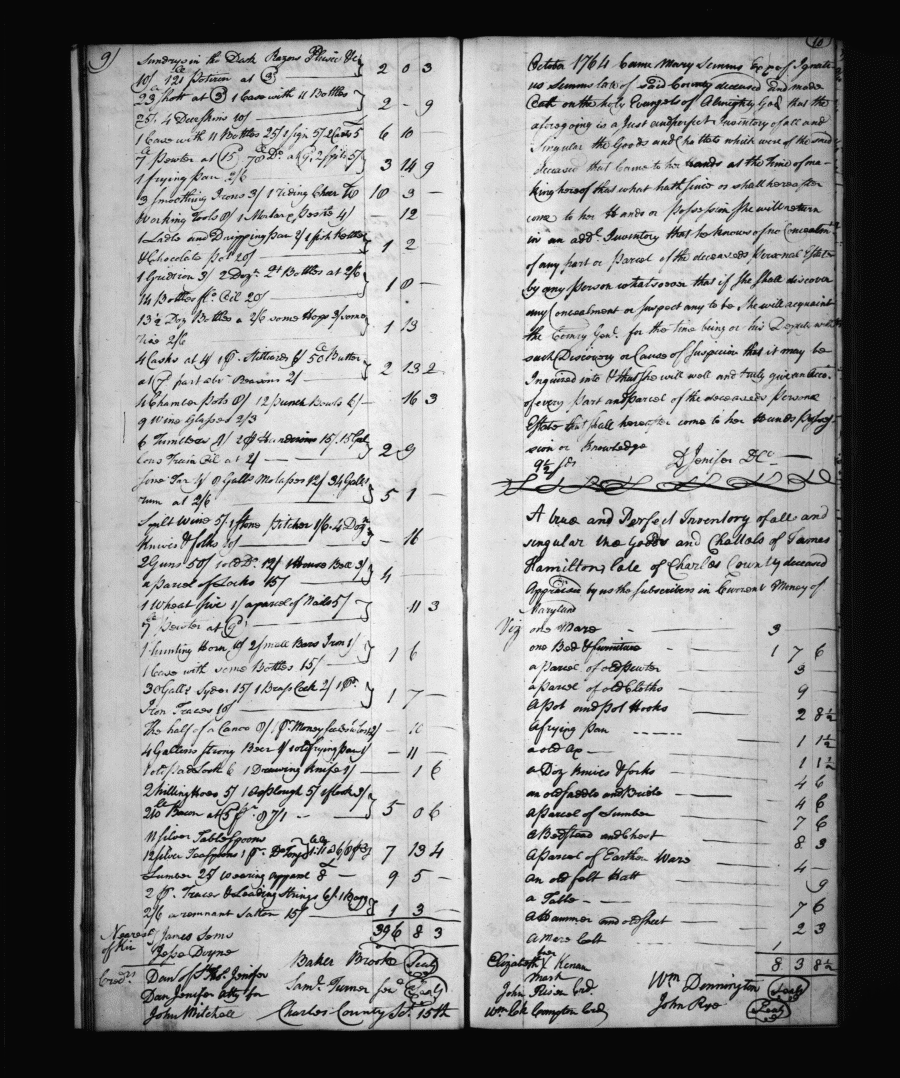 9)
Sundrys in the Desk Razors Phisic &c
10/ 12 lb Potrien at 3 — 2 0 3
29 shott at 3 1 Case with 11 Bottles
25/. 4 Deerskins 10/ — 2 - 9
1 Case with 11 Bottles 25/ 1 sign 5/ 2 Casks 5 6 10 —
7 lb Pewter at 15 78 lb Do. at 9 2 spits 5/
1 frying pan 2/6 — 3 14 9
3 Smoothing Irons 3/ 1 Riding Chair 10 3 —
Working Tools 8/ 1 Mortar & Pestle 4/ — 12
1 Ladle and Dripping pan 2/ 1 fish Kettle
& Chocolate Pot 20/ — 1 2 —
1 Gridiron 3/ 2 Doz. Qt Bottles at 2/6
14 Bottles Oil 20/ — 1 8 —
13½ Doz Bottles a 2/6 some Hops 3/ some
2/6 — 1 13
4 Casks at 4/ 1 pr. Stilliards 50 lb Butter
at 7 part abr Reasons 2/ — 2 13 2
4 Chamber Pots 8/ 12 punch Bowls 6/ — 16 3
9 Wine Glasses 2/3
6 Tumblers 2 pr Handirons 15/. 15 Gal
lons Train Oil at 2/ — 2 9
some Tar 4/ 8 Galls Molasses 12/ 34 Galls
rum at 2/6 — 5 1 —
Spilt Wine 5/ 1 stone pitcher 1/6. 4 Doz
Knives & forks — 16
2 Guns 50/ 1 old Do. 12/ House Bell 3/
a parcel of Locks 15/ — 4 —
1 Wheat sive 1/ a parcel of Nails 5/
7 lb pewter at 9 — 11 3
1 hunting Horn 2 small Bars Iron 1/
1 Case with some Bottles 15/ — 1 6
30 Galls Syder 15/ 1 Brass Cock 2/ 1 pr.
Iron Traces 10/ — 1 7 —
The half of a Canoe 8/. — 10 —
4 Gallons strong Beer 1 old frying pan — 11 —
1 old padlock 6 1 Drawing Knife 1/ — 1 6
2 hilling Hoes 5/ 1 old plough 5/ 1 flock 3/
lb Bacon at 5 — 5 0 6
11 silver Table spoons
12 silver Teaspoons 1 pr. Do Tongs 7 13 4
Lumber 25/ Wearing apparel £8 — 9 5 —
2 pr. Traces & Leading Strings 6/ 1 Bagg
2/6 a remnant Satten 15/ — 1 3 —
396 8 3
Nearest of Kin James Sems
Jesse Doyne
Credrs. Danl of St. Thos. Jenifer Baker Brooke Seal
Dan Jenifer atty for Saml. Turner Junr. Seal
John Mitchell Charles County St. 15th
10
October 1764 Came Mary Semms Exx of Ignati
us Semms late of said County deceased and made
Oath on the holy Evangels of Almighty God that the
aforegoing is a Just and perfect Inventory of all and
Singular the Goods and Chattels which were of the said
deceased that Came to her hands at the time of ma-
king hereof that what hath since or shall hereafter
come to her Hands or Possession she will return
in an addl. Inventory that she knows of no Concealmt.
of any part or Parcel of the deceaseds Personal Estate
by any Person whatsoever that if she shall discover
any Concealment or suspect any to be she will acquaint
the Comry Genl. for the time being or his Deputy with
such Discovery or Cause of Suspicion that it may be
Inquired into & that she will well and truly give an Acct.
of every Part and Parcel of the deceaseds Personal
Estate that shall hereafter come to her Hands Posses-
sion or Knowledge
9½ sds D Jenifer D Cy
A true and Perfect Inventory of all and
singular the Goods and Chattels of James
Hamilton late of Charles County deceased
Appraised by us the Subscribers in Current Money of
Maryland
Viz one Mare — 3
one Bed & furniture — 1 7 6
a parcel of old pewter 3
a parcel of old Cloths 9
a Pot and Pot Hooks 2 8½
a frying pan 1 1½
a old ax 1 1½
a Doz Knives & forks 4 6
an old saddle and Bridle 4 6
a Parcel of Lumber 7 6
a Bedstead and Chest 8 3
a Parcel of Earthen Ware 4 —
an old felt Hatt 9
a Table 7 6
a Hammer and old sheet 2 3
a Mare Colt 1
8 3 8½
Elizabeth her X mark Kenan
John Reson Cred Wm Dennington Seal
Wm Compton Cred John Rye Seal